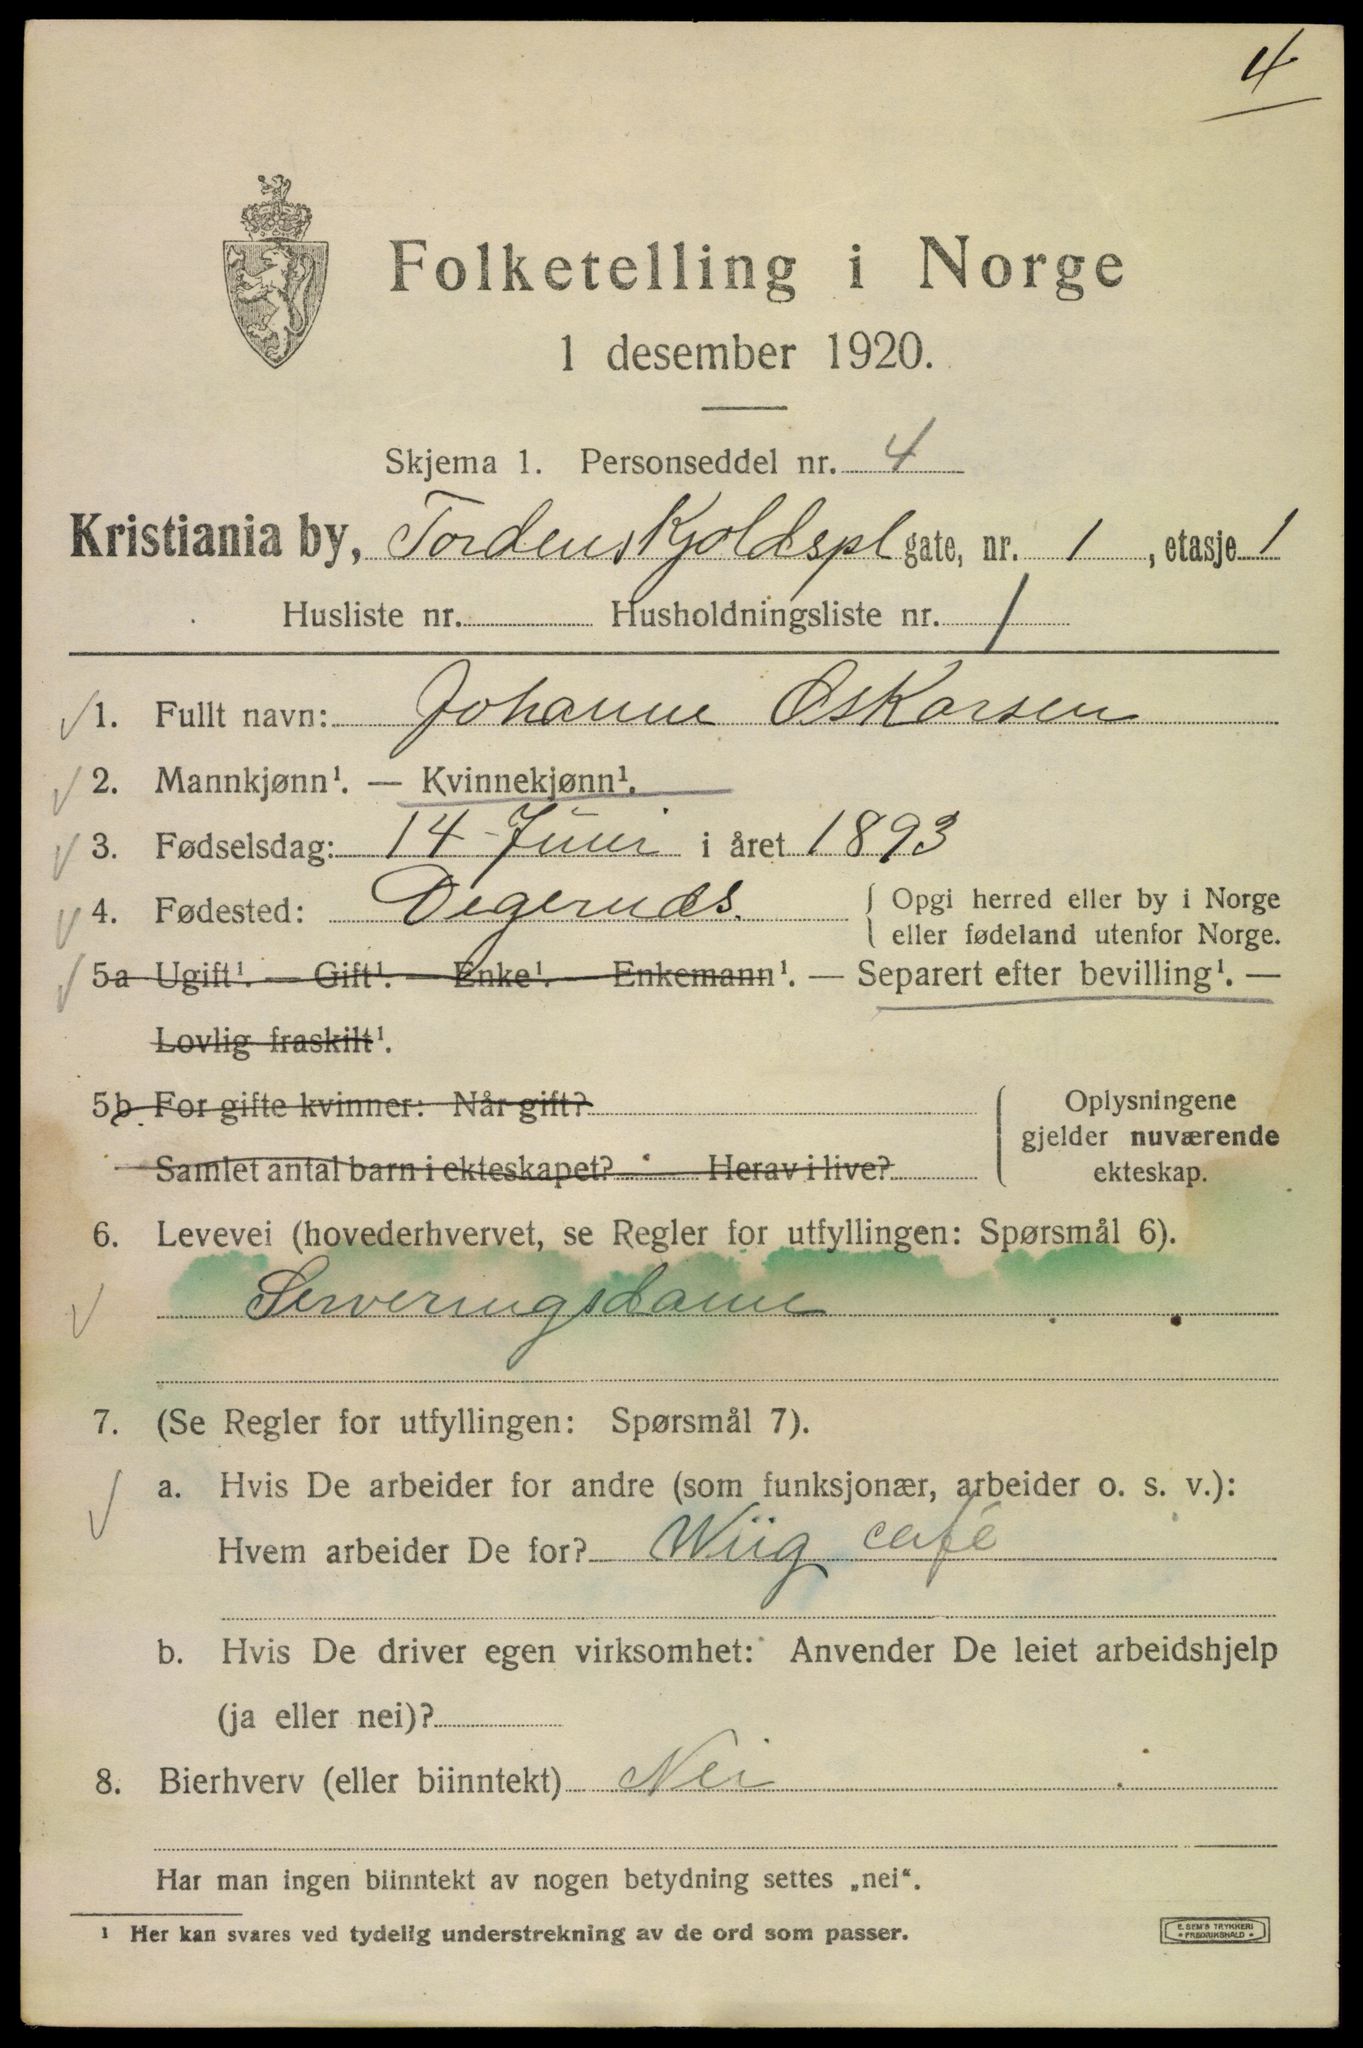 4
Folketelling i Norge
1 desember 1920.
Skjema 1. Personseddel nr. 4
Kristiania by, Tordenskjoldspl gate, nr. 1, etasje 1
Husliste nr. Husholdningsliste nr. 1
1. Fullt navn: Johanne Oskarsen
2. Mannkjønn¹. — Kvinnekjønn¹.
3. Fødselsdag: 14 - Juni i året 1893
4. Fødested: Degernes. Opgi herred eller by i Norge
eller fødeland utenfor Norge.
5a Ugift¹. — Gift¹. — Enke¹. — Enkemann¹. — Separert efter bevilling¹. —
Lovlig fraskilt¹.
5b For gifte kvinner: Når gift?
Samlet antal barn i ekteskapet? Herav i live?
Oplysningene
gjelder nuværende
ekteskap.
6. Levevei (hovederhvervet, se Regler for utfyllingen: Spørsmål 6).
Serveringsdame
7. (Se Regler for utfyllingen: Spørsmål 7).
a. Hvis De arbeider for andre (som funksjonær, arbeider o. s. v.):
Hvem arbeider De for? Wiig café
b. Hvis De driver egen virksomhet: Anvender De leiet arbeidshjelp
(ja eller nei)?
8. Bierhverv (eller biinntekt) Nei
Har man ingen biinntekt av nogen betydning settes „nei“.
¹ Her kan svares ved tydelig understrekning av de ord som passer.
E. SEM'S TRYKKERI
• FREDRIKSHALD •